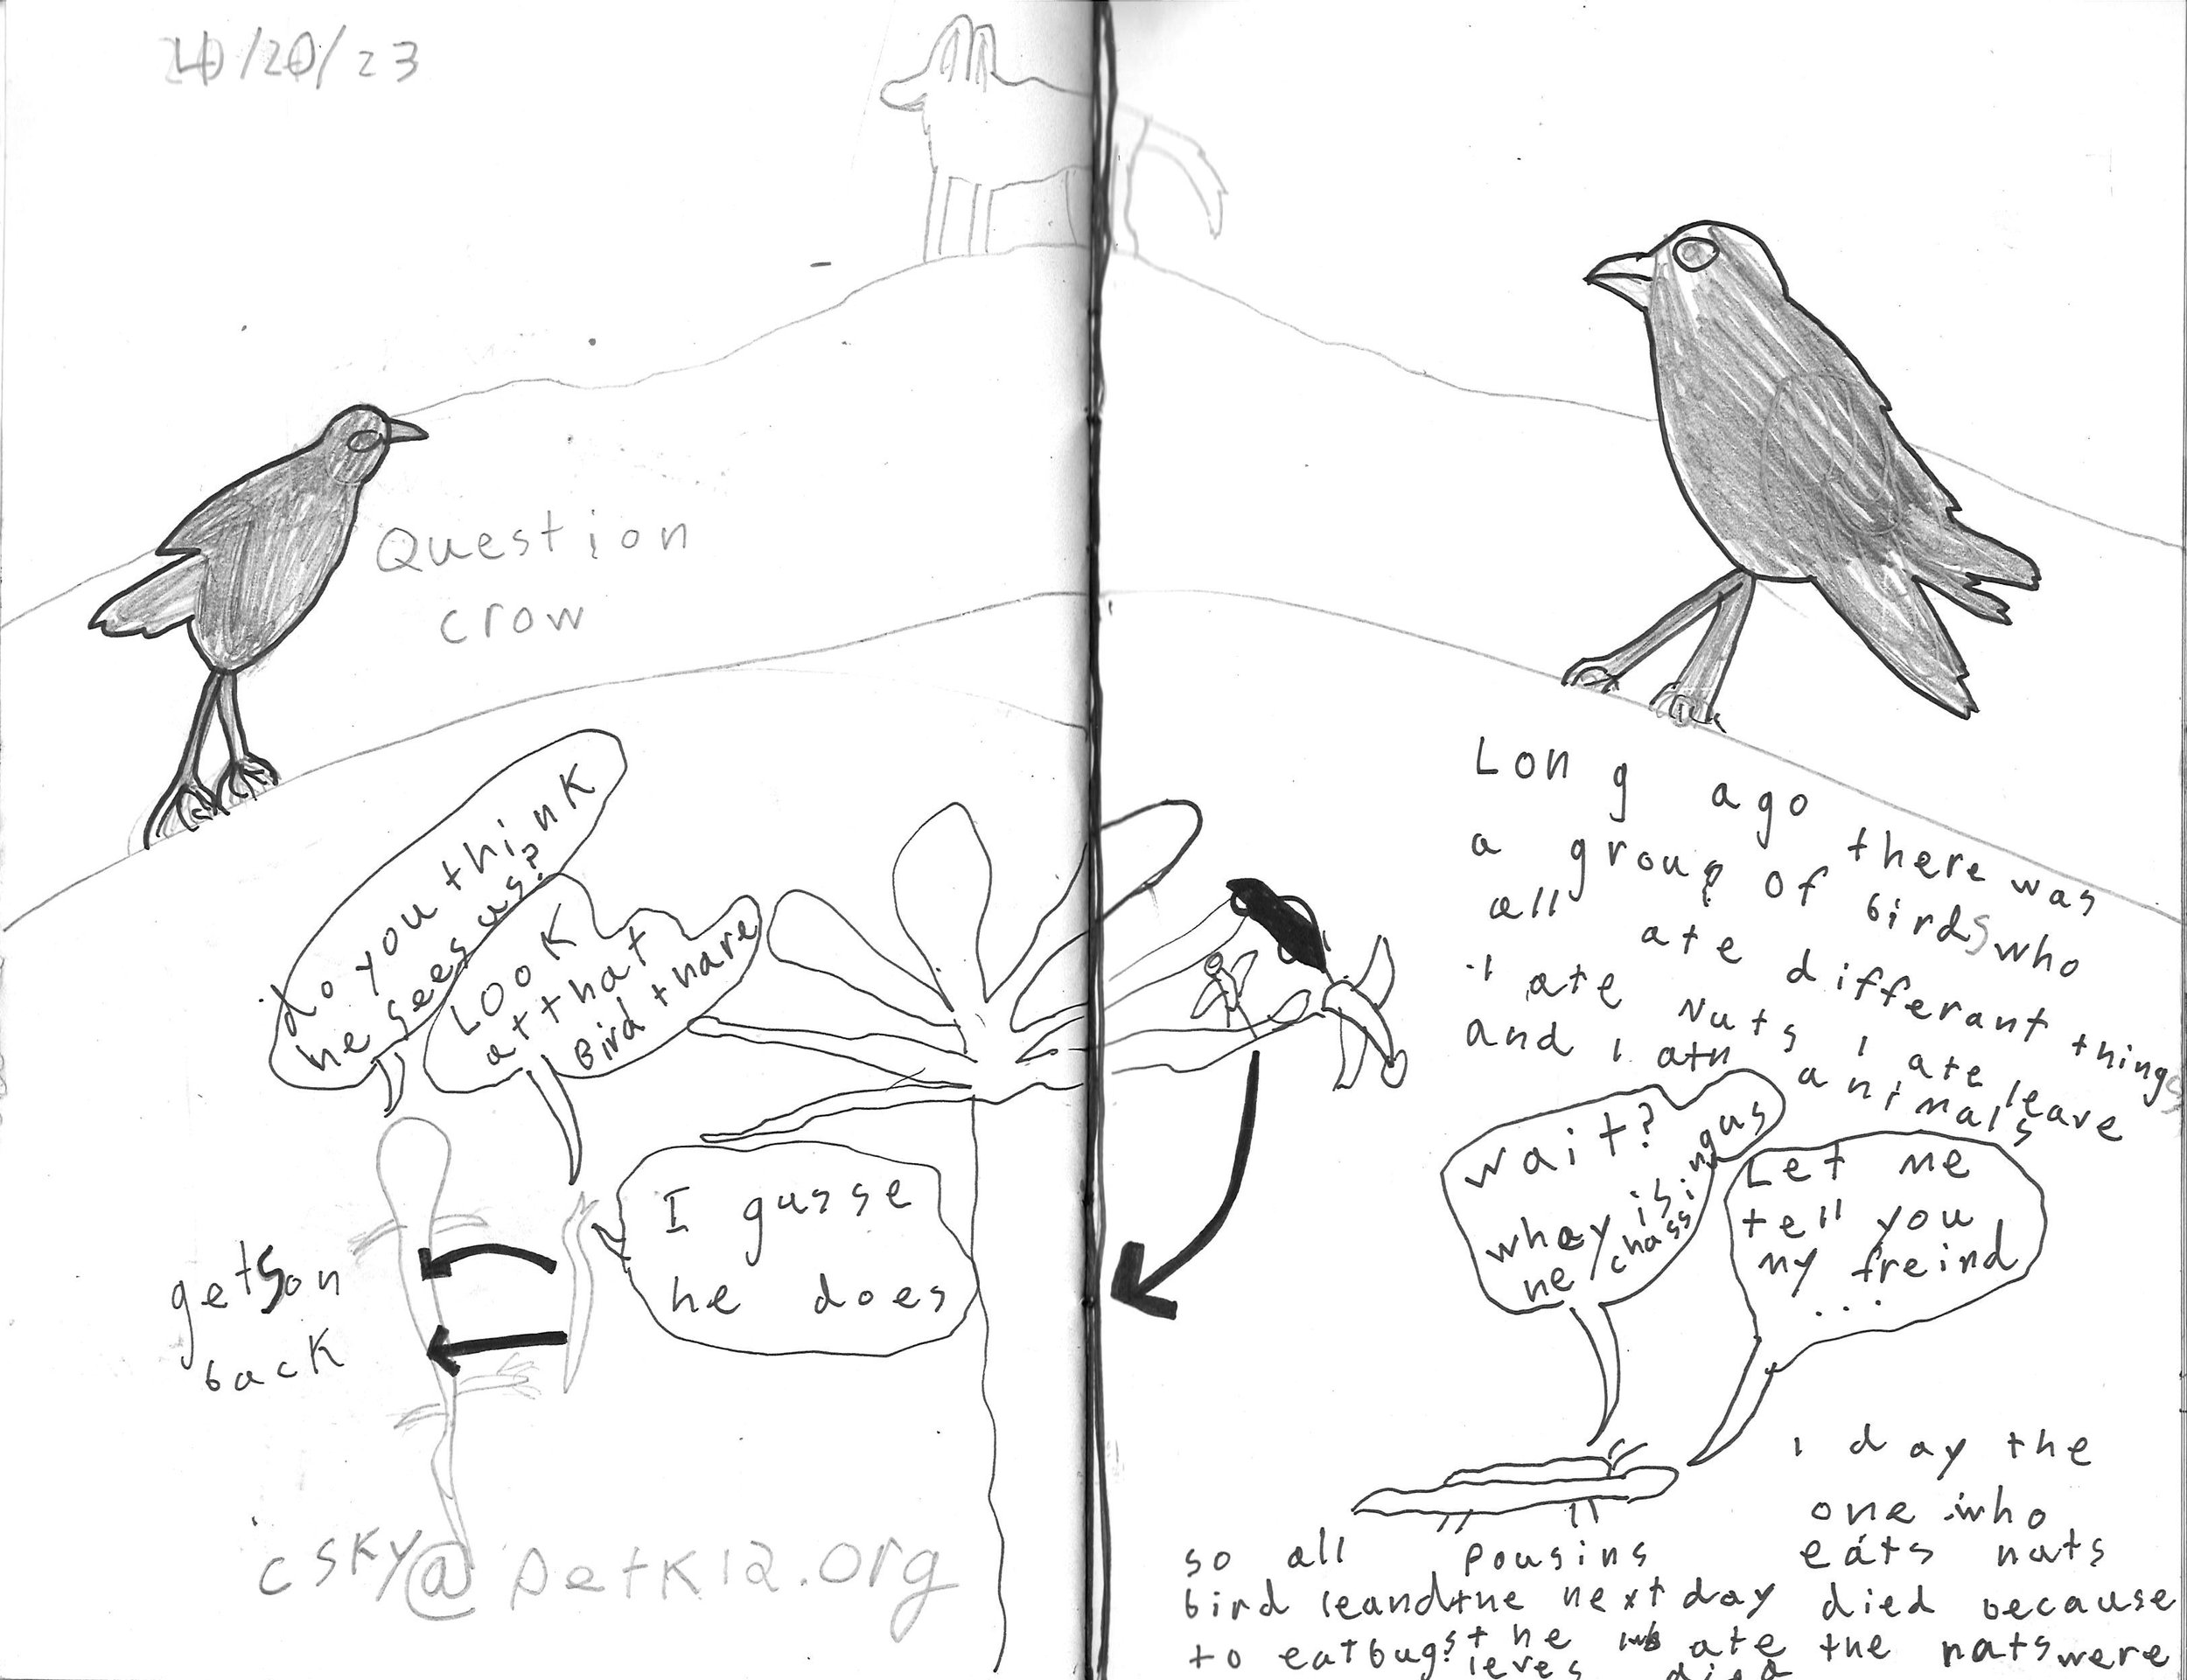 /20/23
Question
crow
do you think
he sees us?
LOOK
at that
Bird thare
I gusse
he does
gets on
back
csky@petk12.org
Long ago there was
a group of birds who
all ate differant things
1 ate nuts 1 ate leave
and 1 atn animals
wait?
whey is
he chassing us
Let me
tell you
my freind
...
1 day the
one who
eats nuts
died because
the nuts were
pousins
and the next day
the ate
leves died
so all
bird
to eat bugs